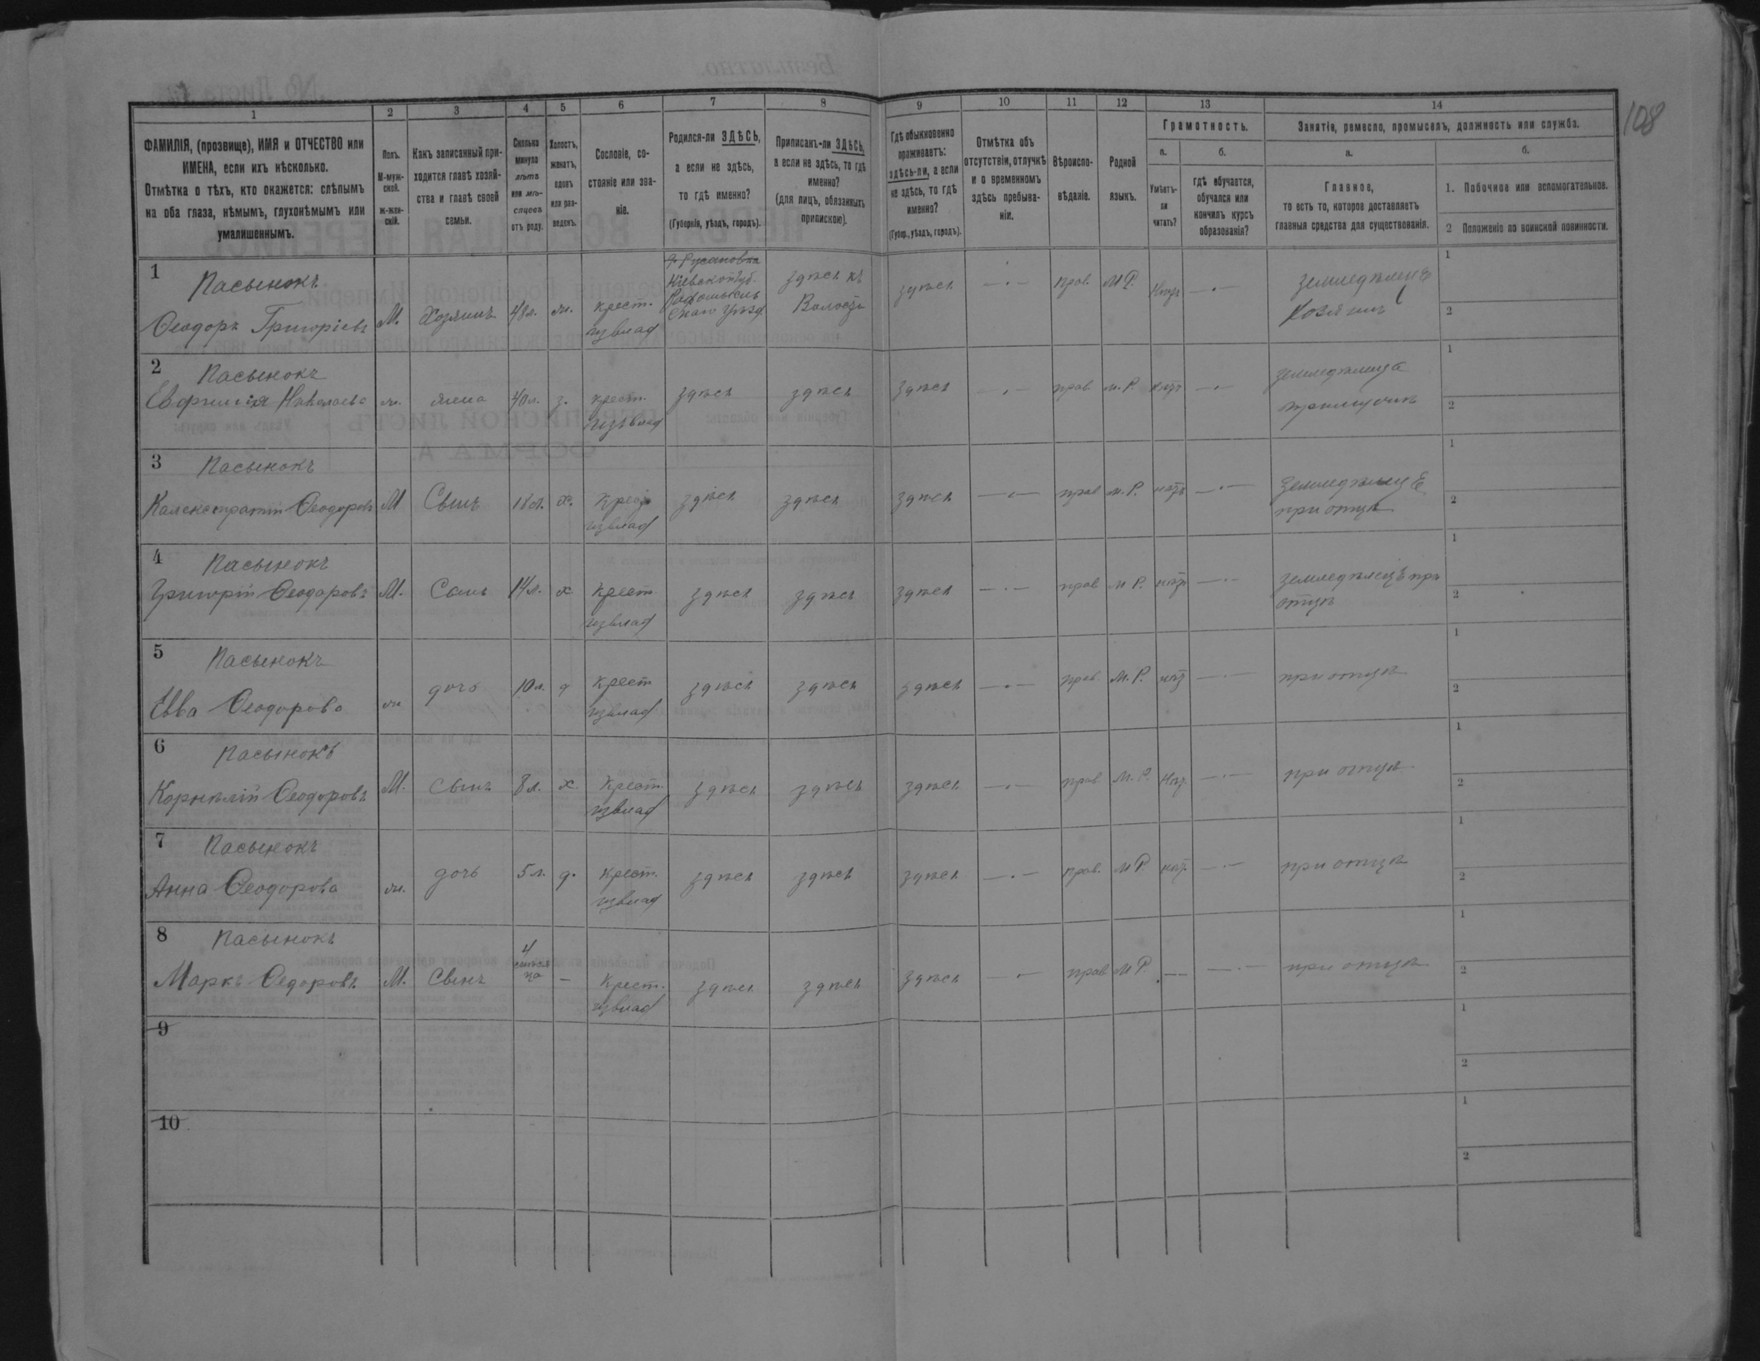 108
1 2 3 4 5 6 7 8 9 10 11 12 13 14
ФАМИЛІЯ, (прозвище), ИМЯ и ОТЧЕСТВО или
ИМЕНА, если ихъ нѣсколько.
Отмѣтка о тѣхъ, кто окажется: слѣпымъ
на оба глаза, нѣмымъ, глухонѣмымъ или
умалишеннымъ.
Полъ.
М-муж-
ской.
Ж-жен-
скій.
Какъ записанный при-
ходится главѣ хозяй-
ства и главѣ своей
семьи.
Сколько
минуло
лѣтъ
или мѣ-
сяцевъ
отъ роду.
Холостъ,
женатъ,
вдовъ
или раз-
веденъ.
Сословіе, со-
стояніе или зва-
ніе.
Родился-ли ЗДѢСЬ,
а если не здѣсь,
то гдѣ именно?
(Губернія, уѣздъ, городъ).
Приписанъ-ли ЗДѢСЬ,
а если не здѣсь, то гдѣ
именно?
(для лицъ, обязанныхъ
припискою).
Гдѣ обыкновенно
проживаетъ:
здѣсь-ли, а если
не здѣсь, то гдѣ
именно?
(Губер., уѣздъ, городъ).
Отмѣтка объ
отсутствіи, отлучкѣ
и о временномъ
здѣсь пребыва-
ніи.
Вѣроиспо-
вѣданіе.
Родной
языкъ.
Грамотность.
а. б.
Умѣетъ-
ли
читать?
гдѣ обучается,
обучался или
кончилъ курсъ
образованія?
Занятіе, ремесло, промыселъ, должность или служба.
а. б.
Главное,
то есть то, которое доставляетъ
главныя средства для существованія.
1. Побочное или вспомогательное.
2 Положеніе по воинской повинности.
1 Пасынокъ
Ѳеодоръ Григоріевъ М. Хозяинъ 48л. ж. крест. извлад
Кіевской Губ. Радомысль скаго Уѣзд
здѣсь къ Волости здѣсь — прав. М.Р. —
земледѣлецъ
хозяинъ
1
2
2 Пасынокъ
Евфимія Николаева ж. жена 40л. з. крест. изъ влад здѣсь здѣсь здѣсь — прав М.Р. —
1
2
3 Пасынокъ
Каленстратій Ѳеодоровъ М Сынъ 18л. х. крест изъвлад здѣсь здѣсь здѣсь — прав М.Р. —
земледѣлецъ
при отцѣ
1
2
4 Пасынокъ
Григорій Ѳеодоровъ М. Сынъ 14л. х крест. изъвлад здѣсь здѣсь здѣсь — прав М.Р. —
земледѣлецъ при
отцѣ
1
2
5 Пасынокъ
Евва Ѳеодорова ж дочь 10л. д крест изъвлад здѣсь здѣсь здѣсь — прав. М.Р. — при отцѣ
1
2
6 Пасынокъ
Корнилій Ѳеодоровъ М. сынъ 8л. х крест. изъвлад здѣсь здѣсь здѣсь — прав М.Р. — при отцѣ
1
2
7 Пасынокъ
Анна Ѳеодорова ж. дочь 5л. д. крест. изъвлад здѣсь здѣсь здѣсь — прав. М.Р. — при отцѣ
1
2
8 Пасынокъ
Маркъ Ѳедоровъ М. Сынъ 4 — Крест. изъвлад здѣсь здѣсь здѣсь — прав М.Р. — — при отцѣ
1
2
9
1
2
10
1
2